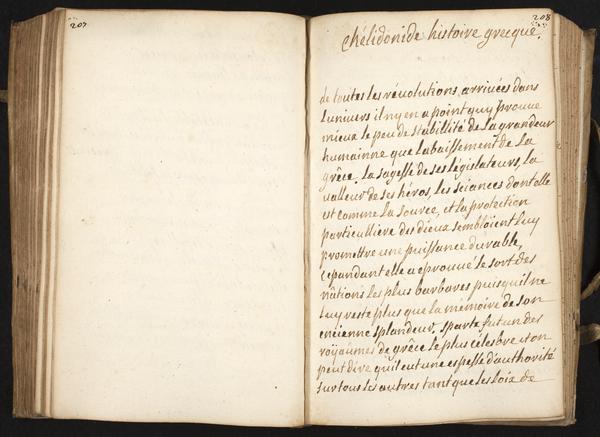 207
208
chélidonide histoire grecque.
de toutes les révolutions, arrivées dans
lunivers il ny en a point quy prouve
mieux le peu de stabillité de la grandeur
humainne que labaissement de la
grêce. la sagesse de ses législateurs, la
valleur de ses héros, les sciances dont elle
est comme la source, et la protection
particulliere des dieux sembloient luy
promettre une puissance durable,
cependant elle a eprouvé le sort des
nâtions les plus barbares puisquil ne
luy reste plus que la mémoire de son
encienne splandeur. sparte fut un des
royaumes de grêce le plus célesbre et on
peut dire quil eut une espesse d'authorité
sur tous les autres tant que les loix de